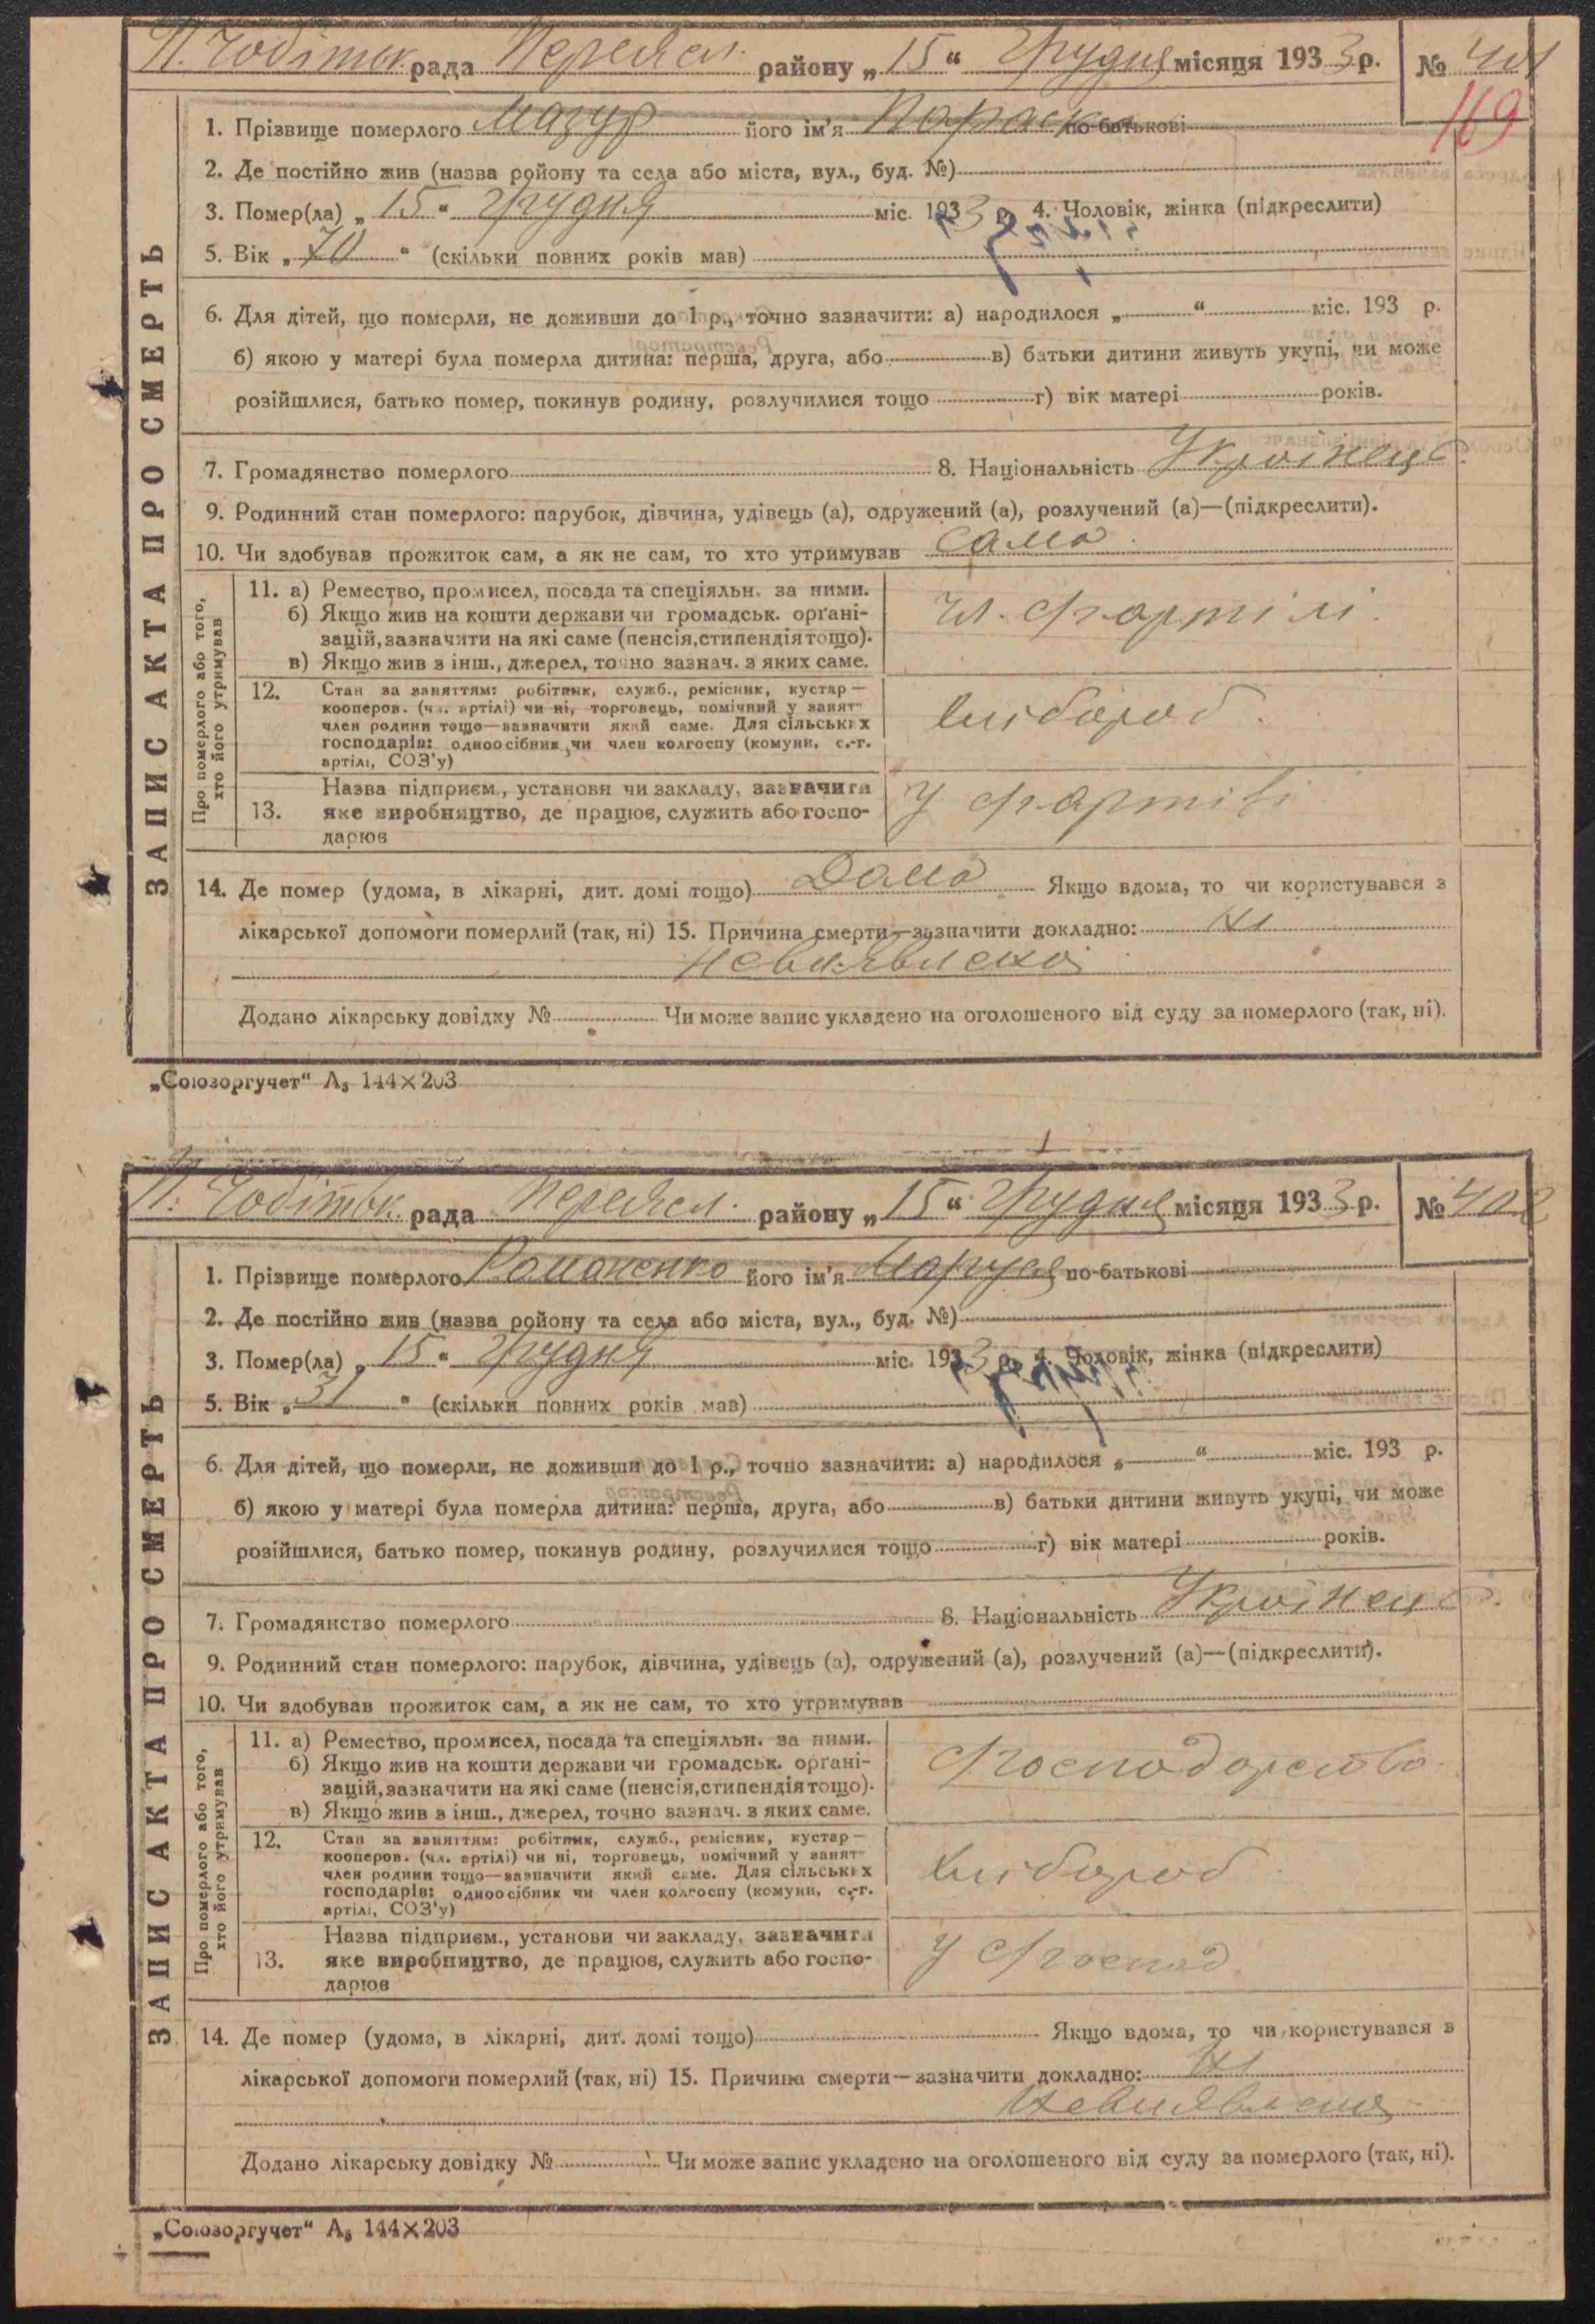 П. Чобітьк. рада Переясл. району „15“ Грудня місяця 1933 р. № 401
169
1. Прізвище померлого Мазур його ім'я Параска по-батькові
2. Де постійно жив (назва району та села або міста, вул., буд. №)
3. Помер(ла) „15“ Грудня міс. 1933 р. 4. Чоловік, жінка (підкреслити)
5. Вік „70“ (скільки повних років мав)
6. Для дітей, що померли, не доживши до 1 р., точно зазначити: а) народилося „ “ міс. 193 р.
б) якою у матері була померла дитина: перша, друга, або в) батьки дитини живуть укупі, чи може
розійшлися, батько помер, покинув родину, розлучилися тощо г) вік матері років.
7. Громадянство померлого 8. Національність Українець
9. Родинний стан померлого: парубок, дівчина, удівець (а), одружений (а), розлучений (а)—(підкреслити).
10. Чи здобував прожиток сам, а як не сам, то хто утримував сама
ЗАПИС АКТА ПРО СМЕРТЬ
Про померлого або того, хто його утримував
11. а) Ремество, промисел, посада та спеціяльн. за ними.
б) Якщо жив на кошти держави чи громадськ. орґані-
зацій, зазначити на які саме (пенсія, стипендія тощо).
в) Якщо жив з інш., джерел, точно зазнач. з яких саме.
чл. артілі
12. Стан за заняттям: робітник, служб., ремісник, кустар—
кооперов. (чл. артілі) чи ні, торговець, помічний у занят-
член родини тощо—зазначити який саме. Для сільських
господарів: одноосібник чи член колгоспу (комуни, с.-г.
артілі, СОЗ'у)
хлібороб.
13. Назва підприєм., установи чи закладу, зазначити
яке виробництво, де працює, служить або госпо-
дарює
У артілі
14. Де помер (удома, в лікарні, дит. домі тощо) Дома Якщо вдома, то чи користувався з
лікарської допомоги померлий (так, ні) 15. Причина смерти—зазначити докладно: Ні
Невиявлена
Додано лікарську довідку № Чи може запис укладено на оголошеного від суду за померлого (так, ні).
„Союзоргучет“ А₅ 144×203
П. Чобітьк. рада Переясл. району „15“ Грудня місяця 1933 р. № 402
1. Прізвище померлого Романенко його ім'я Маруся по-батькові
2. Де постійно жив (назва району та села або міста, вул., буд. №)
3. Помер(ла) „15“ Грудня міс. 1933 р. 4. Чоловік, жінка (підкреслити)
5. Вік „31“ (скільки повних років мав)
6. Для дітей, що померли, не доживши до 1 р., точно зазначити: а) народилося „ “ міс. 193 р.
б) якою у матері була померла дитина: перша, друга, або в) батьки дитини живуть укупі, чи може
розійшлися, батько помер, покинув родину, розлучилися тощо г) вік матері років.
7. Громадянство померлого 8. Національність Українець
9. Родинний стан померлого: парубок, дівчина, удівець (а), одружений (а), розлучений (а)—(підкреслити).
10. Чи здобував прожиток сам, а як не сам, то хто утримував
ЗАПИС АКТА ПРО СМЕРТЬ
Про померлого або того, хто його утримував
11. а) Ремество, промисел, посада та спеціяльн. за ними.
б) Якщо жив на кошти держави чи громадськ. орґані-
зацій, зазначити на які саме (пенсія, стипендія тощо).
в) Якщо жив з інш., джерел, точно зазнач. з яких саме.
Господарство
12. Стан за заняттям: робітник, служб., ремісник, кустар—
кооперов. (чл. артілі) чи ні, торговець, помічний у занят-
член родини тощо—зазначити який саме. Для сільських
господарів: одноосібник чи член колгоспу (комуни, с.-г.
артілі, СОЗ'у)
хлібороб
13. Назва підприєм., установи чи закладу, зазначити
яке виробництво, де працює, служить або госпо-
дарює
У Господ
14. Де помер (удома, в лікарні, дит. домі тощо) Якщо вдома, то чи користувався з
лікарської допомоги померлий (так, ні) 15. Причина смерти—зазначити докладно: Ні
Невиявлена
Додано лікарську довідку № Чи може запис укладено на оголошеного від суду за померлого (так, ні).
„Союзоргучет“ А₅ 144×203